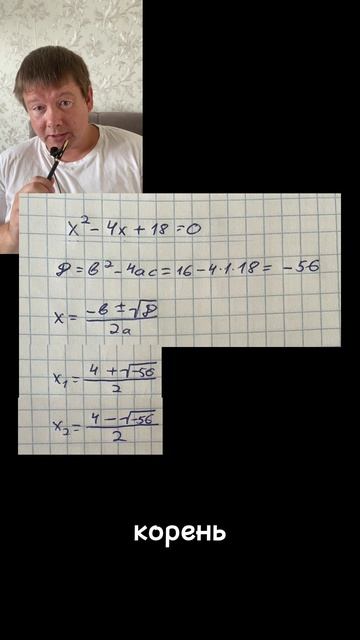 x² - 4x + 18 = 0
D = b² - 4ac = 16 - 4·1·18 = -56
x = (-b ± √D) / 2a
x₁ = (4 + √-56) / 2
x₂ = (4 - √-56) / 2
корень